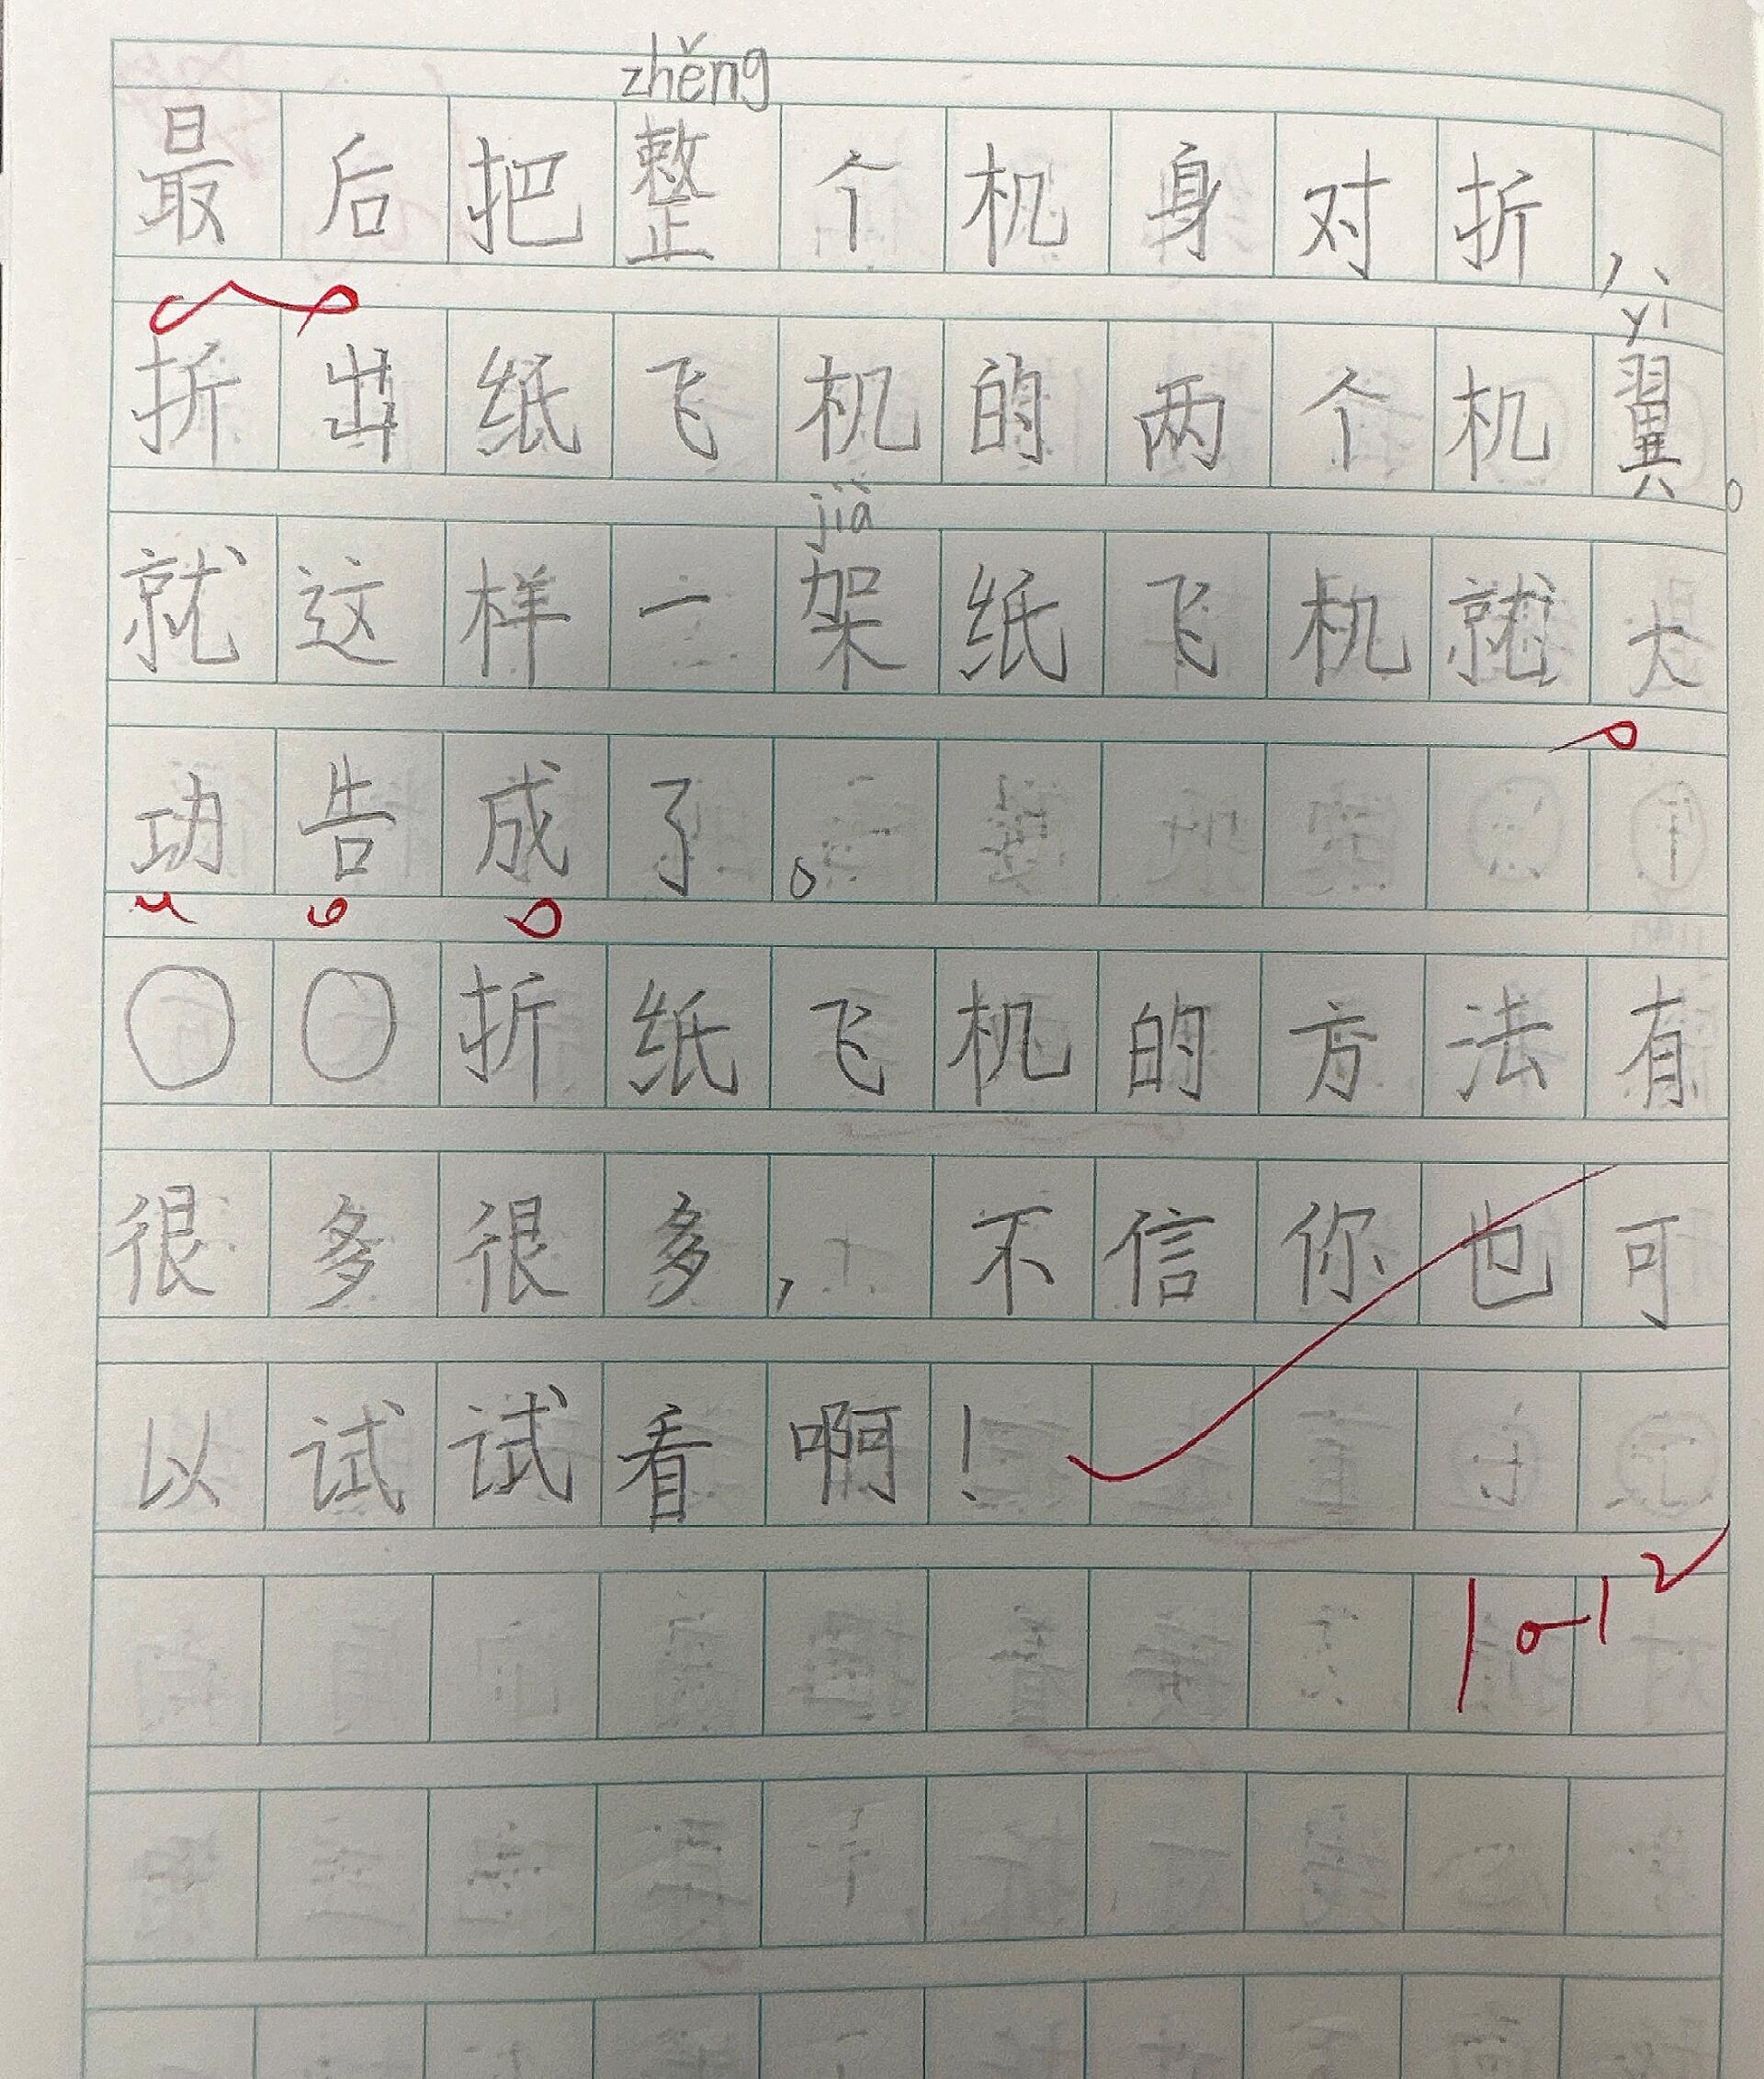 zhěng
最后把整个机身对折，
yì
折出纸飞机的两个机翼。
jià
就这样一架纸飞机就大
功告成了。
〇〇折纸飞机的方法有
很多很多，不信你也可
以试试看啊！
10-12